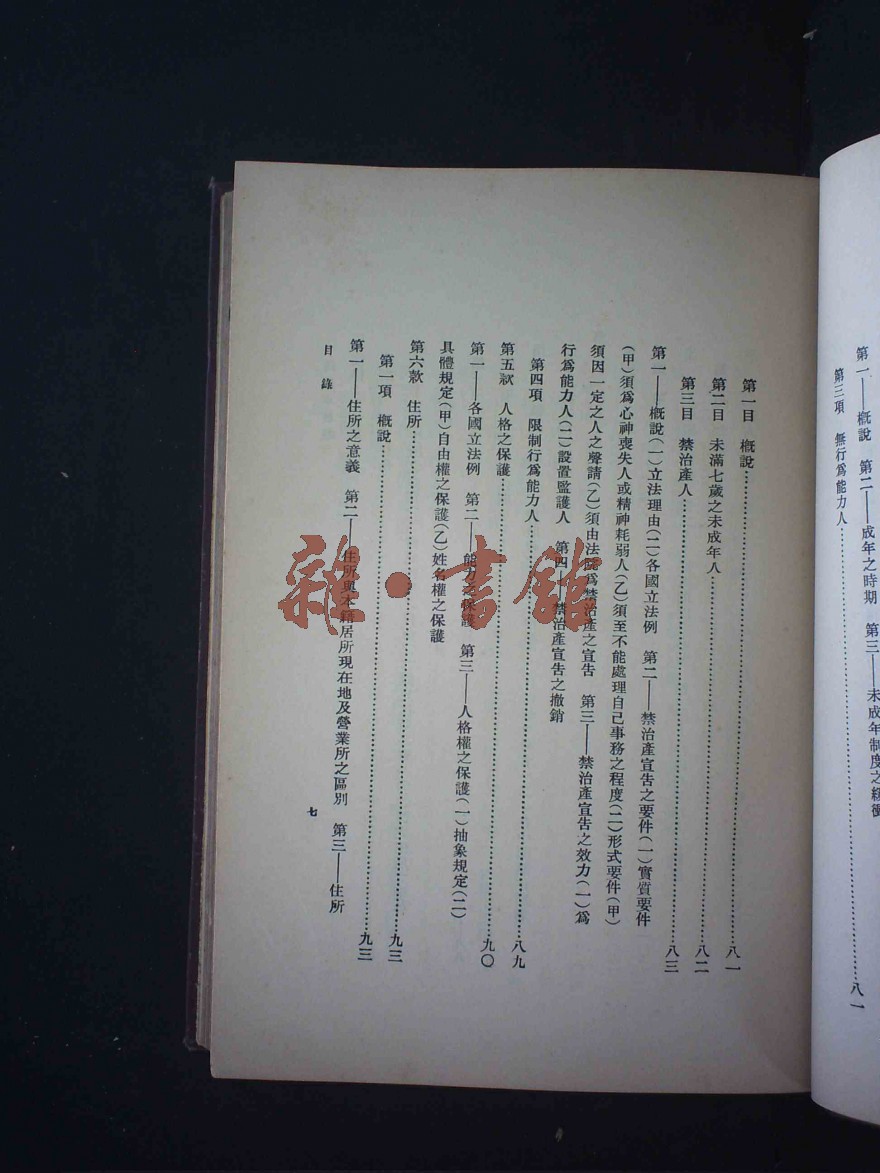 第一——概說　第二——成年之時期　第三——未成年制度之緩衝
第三項　無行爲能力人……八一
第一目　概說……八一
第二目　未滿七歲之未成年人……八二
第三目　禁治產人……八三
第一——概說(一)立法理由(二)各國立法例　第二——禁治產宣告之要件(一)實質要件
(甲)須爲心神喪失人或精神耗弱人(乙)須至不能處理自己事務之程度(二)形式要件(甲)
須因一定之人之聲請(乙)須由法院爲禁治產之宣告　第三——禁治產宣告之效力(一)爲
行爲能力人(二)設置監護人　第四——禁治產宣告之撤銷
第四項　限制行爲能力人……八九
第五款　人格之保護……九〇
第一——各國立法例　第二——能力之保護　第三——人格權之保護(一)抽象規定(二)
具體規定(甲)自由權之保護(乙)姓名權之保護
第六款　住所……九三
第一項　概說……九三
第一——住所之意義　第二——住所與本籍居所現在地及營業所之區別　第三——住所
目錄
七
雜·書館